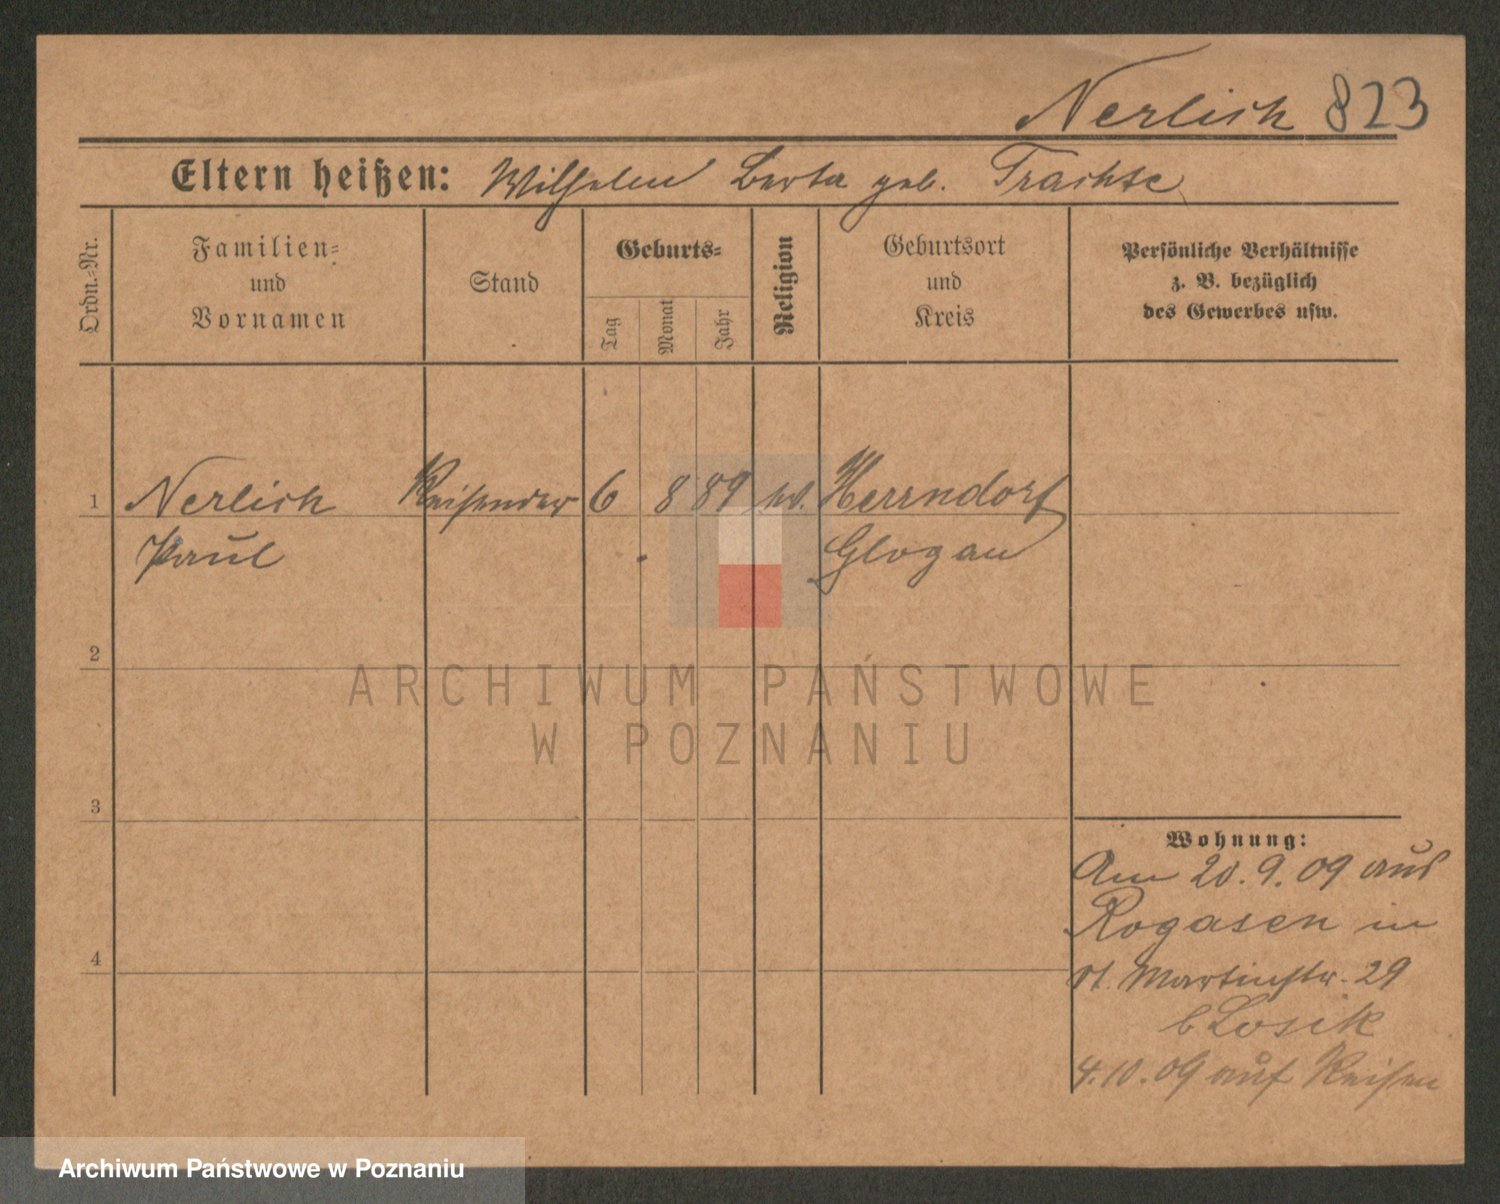 Nerlich 823
Eltern heißen: Wilhelm Berta geb. Trachte
Ordn.-Nr.
Familien-
und
Vornamen
Stand
Geburts-
Tag
Monat
Jahr
Religion
Geburtsort
und
Kreis
Persönliche Verhältnisse
z. B. bezüglich
des Gewerbes usw.
1 Nerlich Reisender 6 8 89 ev. Herrndorf
Paul Glogau
2
3
4
Wohnung:
Am 20.9.09 aus
Rogasen in
St. Martinstr. 29
b Losik
4.10.09 auf Reisen
ARCHIWUM PAŃSTWOWE
W POZNANIU
Archiwum Państwowe w Poznaniu